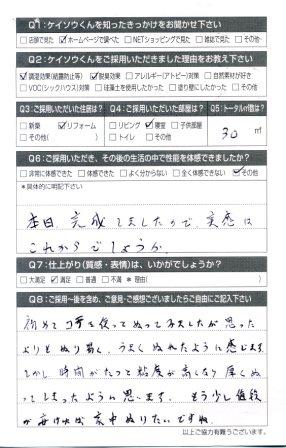 Q1：ケイソウくんを知ったきっかけをお聞かせ下さい
□店頭で見た ☑ホームページで調べた □NETショッピングで見た □雑誌で見た □その他
Q2：ケイソウくんをご採用いただきました理由をお教え下さい
☑調湿効果(結露防止等) ☑脱臭効果 □アレルギー(アトピー)対策 □自然素材が好き
□VOC(シックハウス)対策 □珪藻土を使用したかった □塗り壁にしたかった □その他
Q3：ご採用いただいた住居は？ Q4：ご採用いただいた部屋は？ Q5：トータル㎡数は？
□新築 ☑リフォーム □リビング ☑寝室 □子供部屋 30 ㎡
□その他( ) □トイレ □その他
Q6：ご採用いただき、その後の生活の中で性能を体感できましたか？
□非常に体感できた □体感できた □よく分からない □全く体感できない ☑その他
＊具体的に明記下さい
本日、完成しましたので、実感は
これからでしょうか
Q7：仕上がり(質感・表情)は、いかがでしょうか？
□大満足 ☑満足 □普通 □不満 ＊理由( )
Q8：ご採用～後を含め、ご意見・ご感想ございましたらご自由にご記入下さい
初めてコテを使ってぬってみましたが思った
よりもぬり易く、うまくぬれたように感じます。
しかし時間がたつと粘度が高くなり厚くぬ
ってしまったように思います。もう少し値段
が安ければ家中ぬりたいですね。
以上ご協力有難うございます。